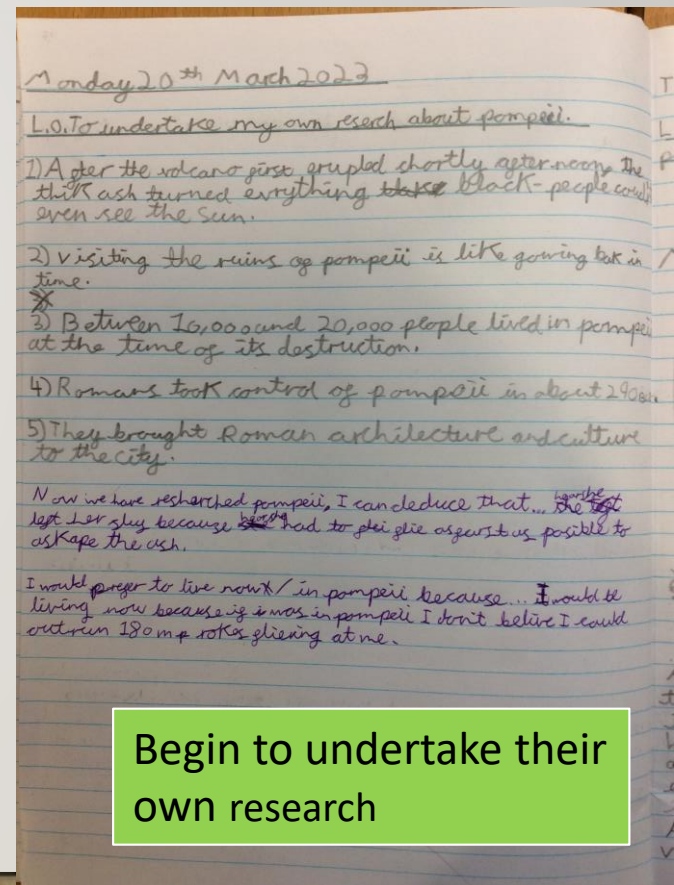 Monday 20th March 2023
L.O. To undertake my own reserch about pompeii.
1) After the volcano first erupted shortly after noon, the
thik ash turned evrything black - people could
even see the sun.
2) visiting the ruins of pompeii is like gowing bak in
time.
3) Between 10,000 and 20,000 people lived in pompeii
at the time of its destruction.
4) Romans took control of pompeii in about 290
5) They brought Roman architecture and culture
to the city.
Now we have resharched pompeii, I can deduce that...
left her because had to as posible to
askape the ash.
I would prefer to live now / in pompeii because... I would be
living now because if i was in pompeii I don't belive I could
outrun 180 rokes gliering at me.
Begin to undertake their
own research